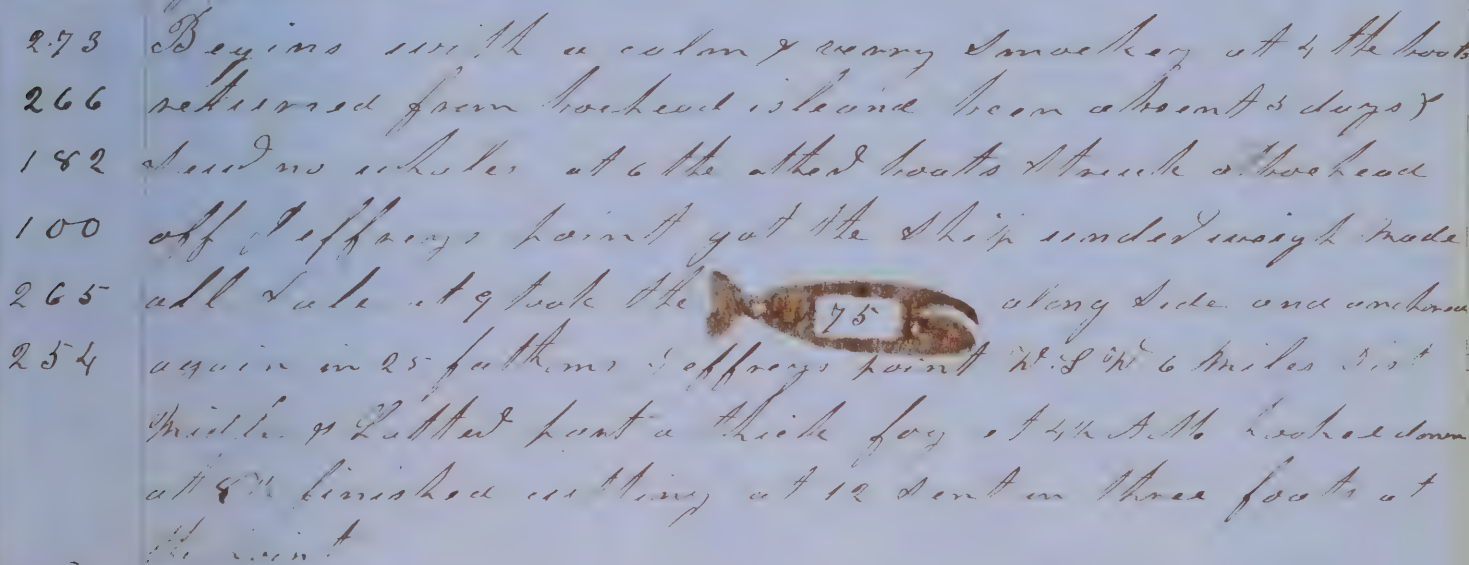 273 Begins with a calm & verry Smoekey at 4 the boats
266 returned from bowhead island been absent 3 days &
182 Seud no whales at 6 the other boats Struck a bowhead
100 off Jeffreys point got the Ship underweigh made
265 all Sale at 9 took the 75 along Side and anchored
254 again in 25 fathoms Jeffreys point W.S.W 6 Miles Dist
Middle & Latter part a thick fog at 4½ A.M. hooked down
at 8 finished cutting at 12 Sent in three foats at
the point